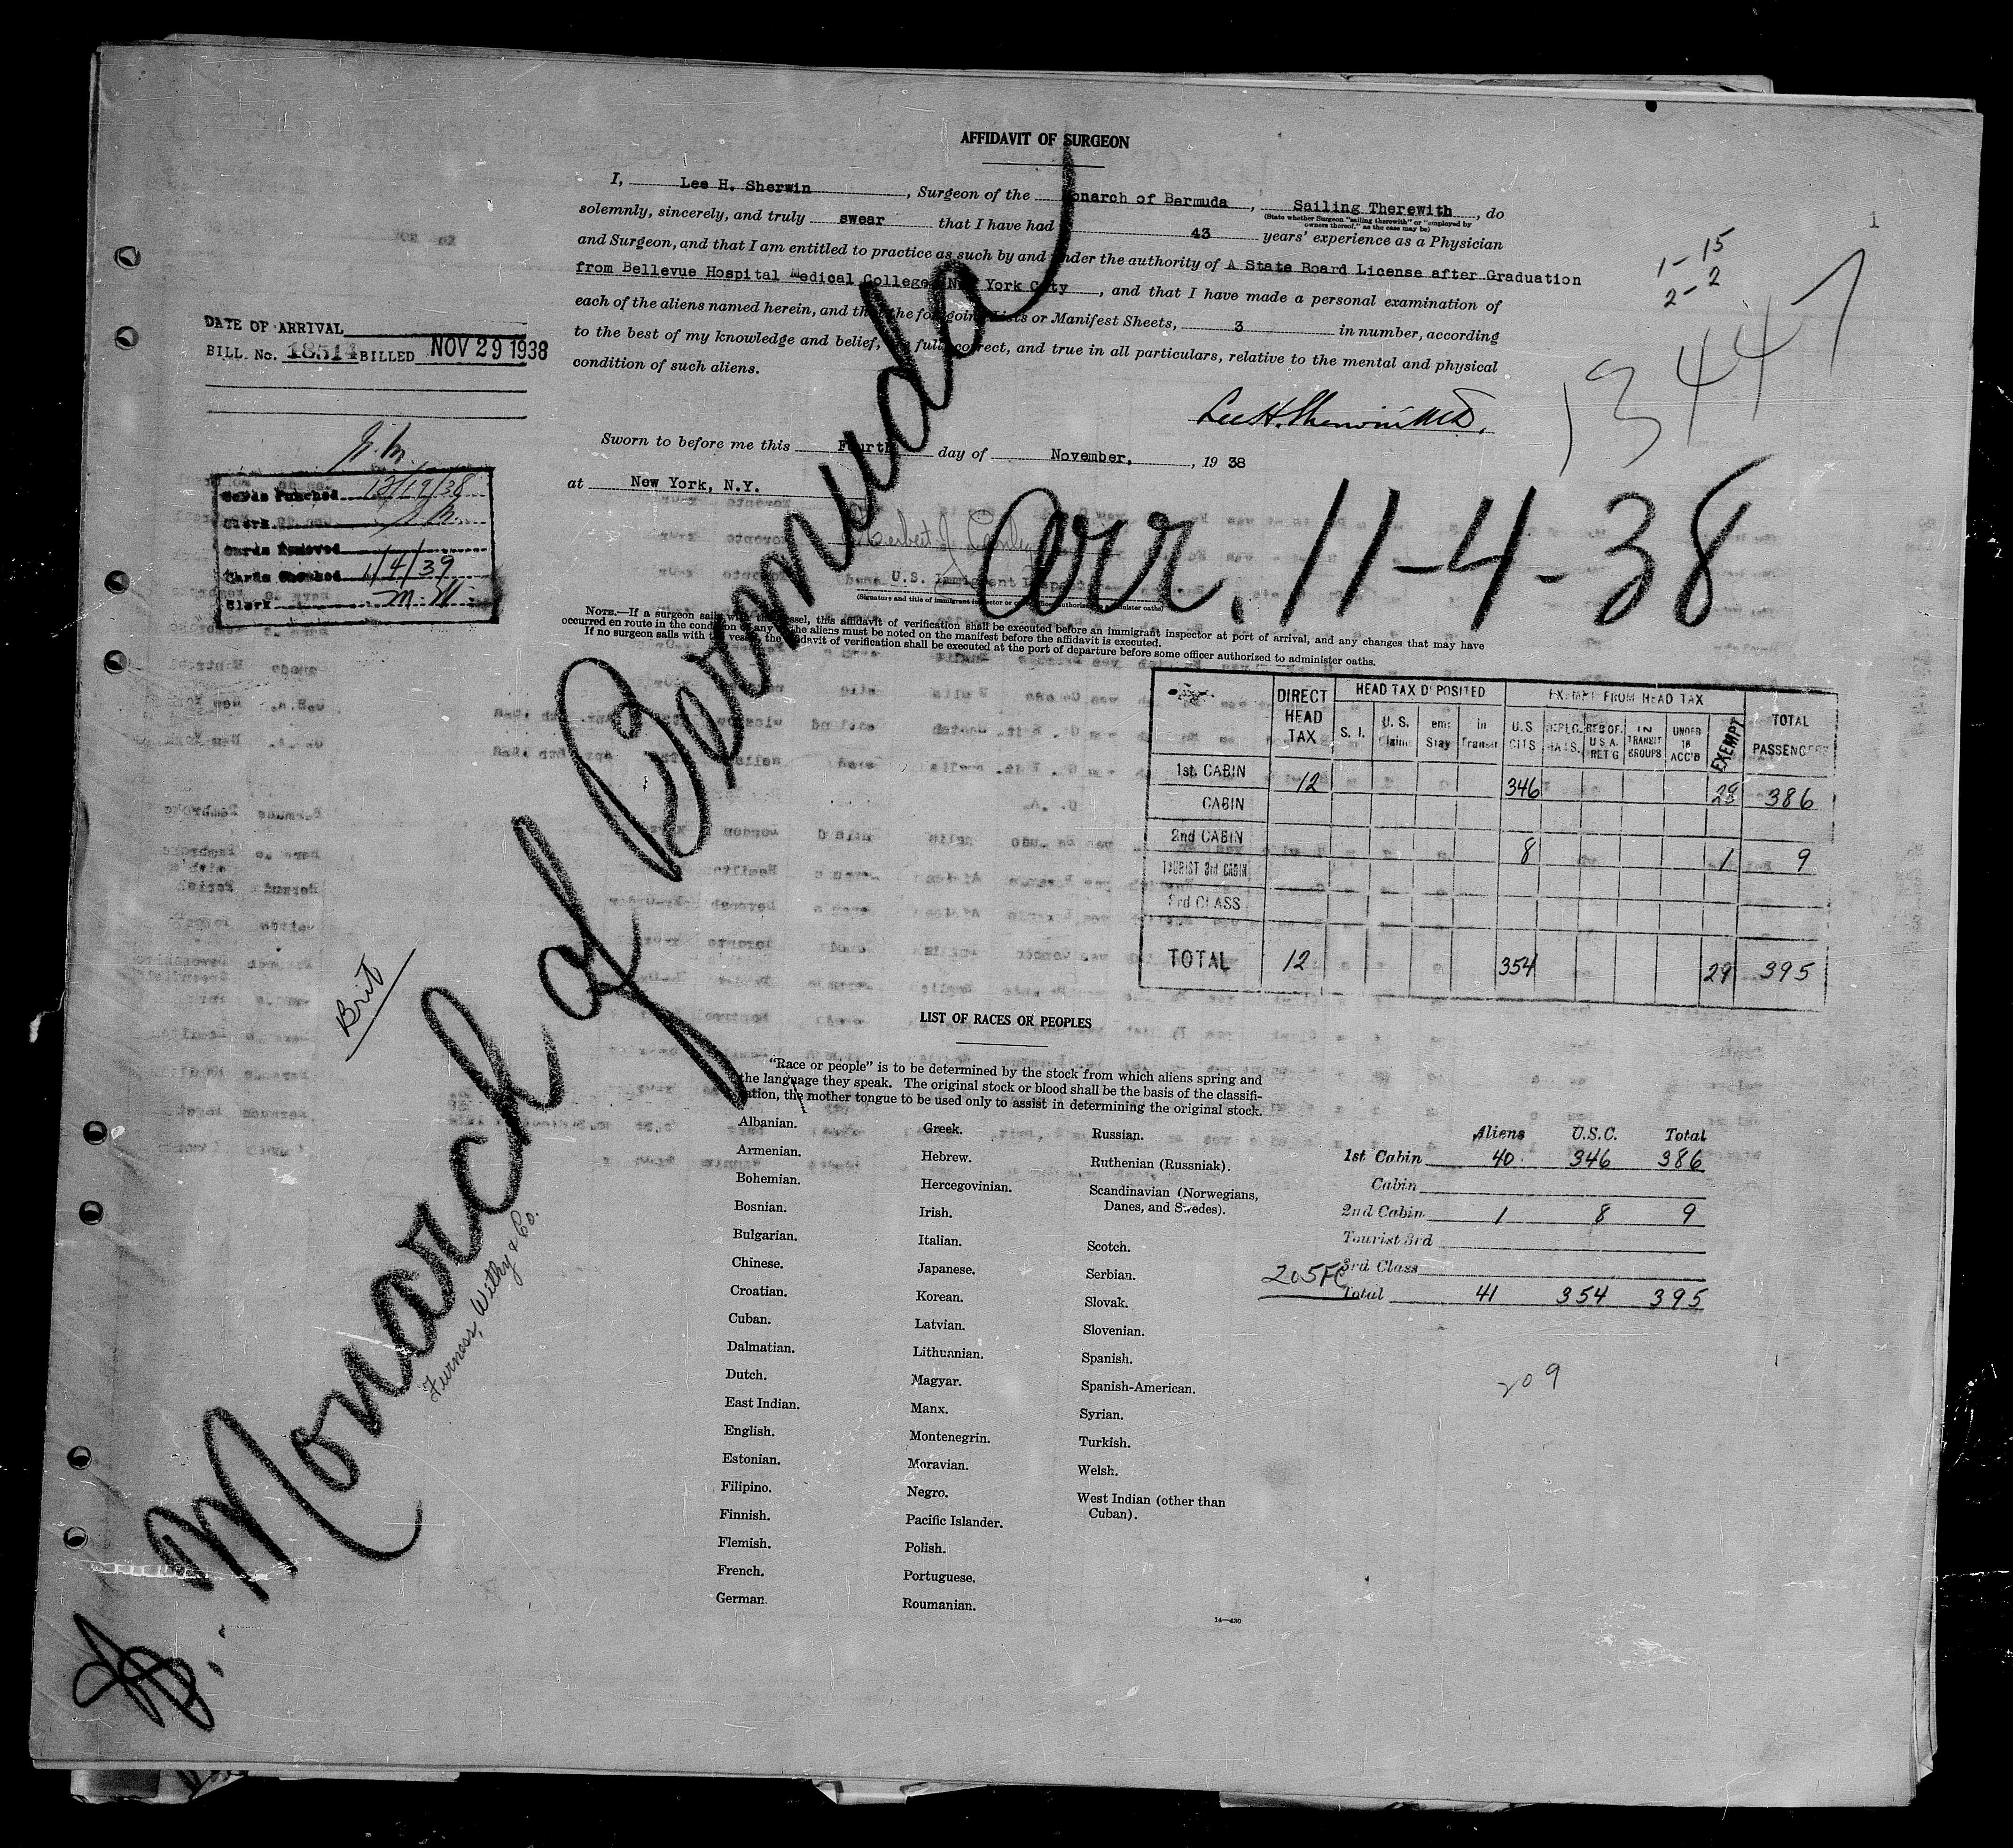 AFFIDAVIT OF SURGEON
1
I, Lee H. Sherwin, Surgeon of the Monarch of Bermuda, Sailing Therewith, do
(State whether Surgeon "sailing therewith" or "employed by owners thereof," as the case may be)
solemnly, sincerely, and truly swear that I have had 43 years' experience as a Physician
and Surgeon, and that I am entitled to practice as such by and under the authority of A State Board License after Graduation
from Bellevue Hospital Medical College, New York City, and that I have made a personal examination of
each of the aliens named herein, and that the foregoing Lists or Manifest Sheets, 3 in number, according
to the best of my knowledge and belief, are full, correct, and true in all particulars, relative to the mental and physical
condition of such aliens.
1 - 15
2 - 2
13447
DATE OF ARRIVAL
BILL. No. 18514 BILLED NOV 29 1938
Lee H. Sherwin MD.
Sworn to before me this Fourth day of November, 1938
at New York, N.Y.
Cards Punched 12/19/38
Clerk
Cards Removed
Cards Checked 1/4/39
Clerk M.M.
Herbert J.
U.S. Immigrant Inspector
(Signature and title of immigrant inspector or authorized to administer oaths)
Arr. 11-4-38
NOTE.—If a surgeon sails with the vessel, this affidavit of verification shall be executed before an immigrant inspector at port of arrival, and any changes that may have
occurred en route in the condition of any of the aliens must be noted on the manifest before the affidavit is executed.
If no surgeon sails with the vessel, the affidavit of verification shall be executed at the port of departure before some officer authorized to administer oaths.
S. Monarch of Bermuda
Furness, Withy & Co.
Brit
DIRECT HEAD TAX HEAD TAX DEPOSITED EXEMPT FROM HEAD TAX TOTAL PASSENGERS
S. I. U. S. Claims Stay in Transit U.S CITS DIPLO. RES OF. U S A. RET'G IN TRANSIT GROUPS UNDER 16 ACC'D EXEMPT
1st. CABIN 12 346 28 386
CABIN
2nd CABIN 8 1 9
TOURIST 3rd CABIN
3rd CLASS
TOTAL 12 354 29 395
LIST OF RACES OR PEOPLES
"Race or people" is to be determined by the stock from which aliens spring and
the language they speak. The original stock or blood shall be the basis of the classifi-
cation, the mother tongue to be used only to assist in determining the original stock.
Albanian.
Armenian.
Bohemian.
Bosnian.
Bulgarian.
Chinese.
Croatian.
Cuban.
Dalmatian.
Dutch.
East Indian.
English.
Estonian.
Filipino.
Finnish.
Flemish.
French.
German.
Greek.
Hebrew.
Hercegovinian.
Irish.
Italian.
Japanese.
Korean.
Latvian.
Lithuanian.
Magyar.
Manx.
Montenegrin.
Moravian.
Negro.
Pacific Islander.
Polish.
Portuguese.
Roumanian.
Russian.
Ruthenian (Russniak).
Scandinavian (Norwegians,
Danes, and Swedes).
Scotch.
Serbian.
Slovak.
Slovenian.
Spanish.
Spanish-American.
Syrian.
Turkish.
Welsh.
West Indian (other than
Cuban).
14—430
Aliens U.S.C. Total
1st Cabin 40 346 386
Cabin
2nd Cabin 1 8 9
Tourist 3rd
3rd Class
205FC
Total 41 354 395
209